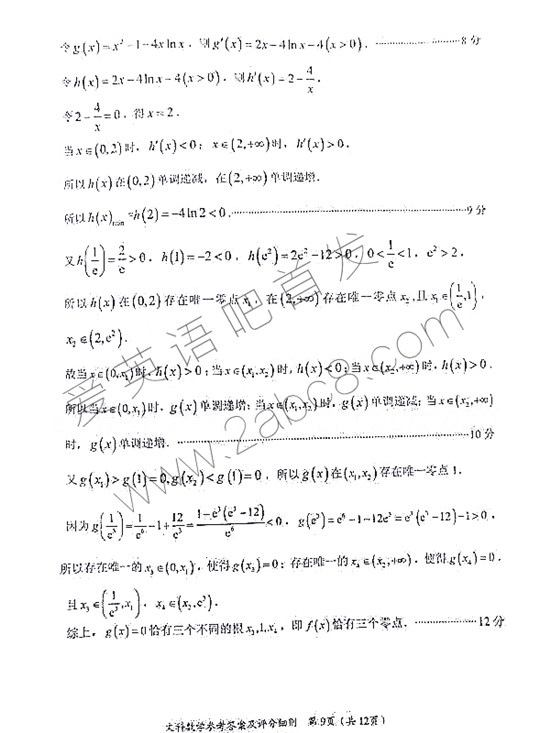 令g(x)=x²-1-4x ln x，则g′(x)=2x-4ln x-4(x>0)．………………8分
令h(x)=2x-4ln x-4(x>0)，则h′(x)=2-4/x，
令2-4/x=0，得x=2．
当x∈(0,2)时，h′(x)<0；x∈(2,+∞)时，h′(x)>0，
所以h(x)在(0,2)单调递减，在(2,+∞)单调递增．
所以h(x)min=h(2)=-4ln2<0．………………9分
又h(1/e)=2/e>0，h(1)=-2<0，h(e²)=2e²-12>0，0<1/e<1，e²>2，
所以h(x)在(0,2)存在唯一零点x₁，在(2,+∞)存在唯一零点x₂，且x₁∈(1/e,1)，
x₂∈(2,e²)．
故当x∈(0,x₁)时，h(x)>0；当x∈(x₁,x₂)时，h(x)<0；当x∈(x₂,+∞)时，h(x)>0．
所以当x∈(0,x₁)时，g(x)单调递增；当x∈(x₁,x₂)时，g(x)单调递减；当x∈(x₂,+∞)
时，g(x)单调递增．………………10分
又g(x₁)>g(1)=0,g(x₂)<g(1)=0，所以g(x)在(x₁,x₂)存在唯一零点1．
因为g(1/e³)=1/e⁶-1+12/e³=(1-e³(e³-12))/e⁶<0，g(e³)=e⁶-1-12e³=e³(e³-12)-1>0，
所以存在唯一的x₃∈(0,x₁)，使得g(x₃)=0；存在唯一的x₄∈(x₂,+∞)，使得g(x₄)=0，
且x₃∈(1/e³,x₁)，x₄∈(x₂,e³)．
综上，g(x)=0恰有三个不同的根x₃,1,x₄，即f(x)恰有三个零点．………………12分
文科数学参考答案及评分细则 第9页（共12页）
爱英语吧首发
www.2abc8.com